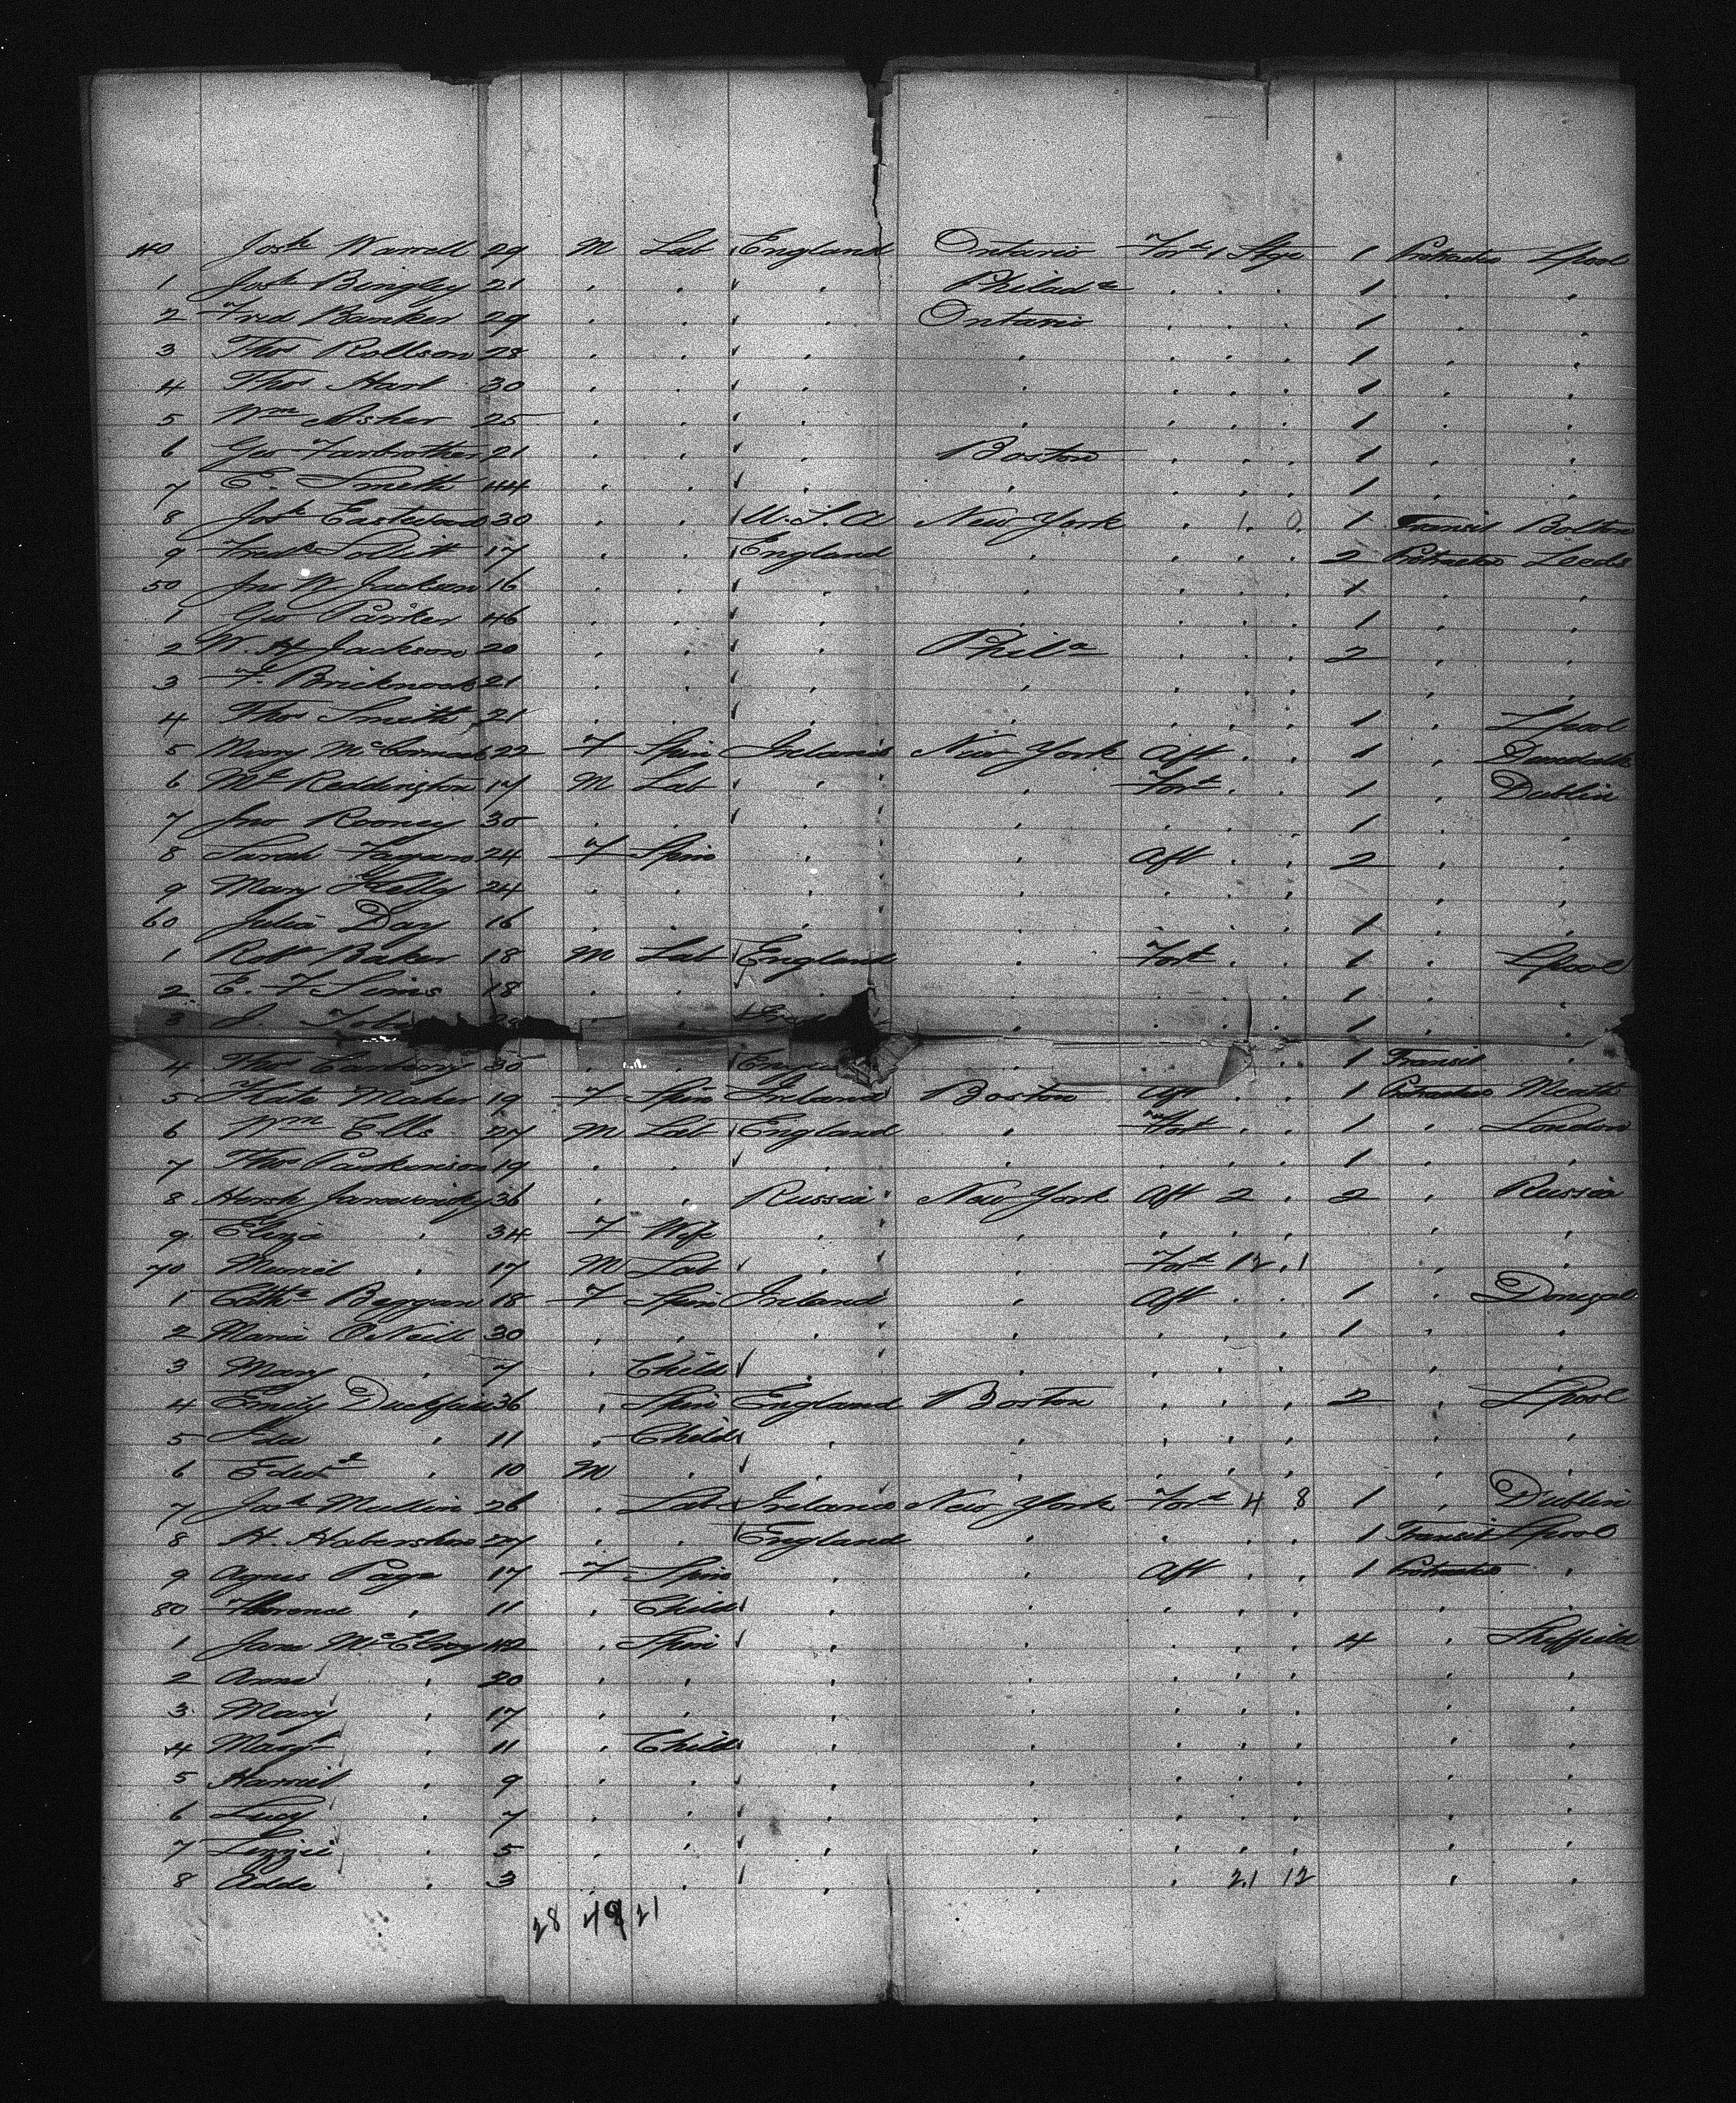 40 Josh Worrell 29 M Lab England Ontario Ford 1 Stge 1 Protracted Lpool
1 Josh Bingley 21 " " " Philada " " " 1 " "
2 Fred Banker 29 " " " Ontario " " " 1 " "
3 Thos Rollson 28 " " " " " " " 1 " "
4 Thos Hart 30 " " " " " " " 1 " "
5 Wm Asher 25 " " " " " " " 1 " "
6 Geo Farbrother 21 " " " Boston " " " 1 " "
7 E. Smith 44 " " " " " " " 1 " "
8 Josh Eastwood 30 " " U.S.A New York " 1 0 1 Transit Bolton
9 Fredk 17 " " England " " " " 2 Protracted Leeds
50 Jno W Jackson 16 " " " " " " " 1 " "
1 Geo Parker 46 " " " " " " " 1 " "
2 W. H Jackson 20 " " " Phila " " " 2 " "
3 F. 21 " " " " " " " " "
4 Thos Smith 21 " " " " " " " 1 " Lpool
5 Mary McCormack 22 F Spin Ireland New York Aft " " 1 " Dundalk
6 Ml Reddington 17 M Lab " " Ford " " 1 " Dublin
7 Jno Rooney 30 " " " " " " " 1 " "
8 Sarah Fagan 24 F Spin " " Aft " " 2 " "
9 Mary Kelly 24 " " " " " " " " "
60 Julia Day 16 " " " " " " " 1 " "
1 Robt Baker 18 M Lab England " Ford " " 1 " Lpool
2 E. F Sims 18 " " " " " " " 1 " "
3 J. " " " " " " 1 " "
4 Thos 30 " " England " " " " 1 Transit "
5 Kate Maher 19 F Spin Ireland Boston Aft " " 1 Protracted Meath
6 Wm Ells 27 M Lab England " Ford " " 1 " London
7 Thos Parkinson 19 " " " " " " " 1 " "
8 Hersh 36 " " Russia New York Aft 2 " 2 " Russia
9 Eliza " 34 F Wife " " " " " " "
70 " 17 M Lab " " Ford 12 1 " "
1 Cathe Beggan 18 F Spin Ireland " Aft " " 1 " Donegal
2 Maria O'Neill 30 " " " " " " " 1 " "
3 Mary " 7 " Child " " " " " " "
4 Emily 36 " Spin England Boston " " " 2 " Lpool
5 Ida " 11 " Child " " " " " " "
6 Edwd " 10 M " " " " " " " "
7 Josh Mullin 26 " Lab Ireland New York Ford 4 8 1 " Dublin
8 H. Habershon 27 " " England " " " " 1 Transit Lpool
9 Agnes Page 17 F Spin " " Aft " " 1 Protracted "
80 Florence " 11 " Child " " " " " " "
1 Jane McElroy 42 " Spin " " " " " 4 " Sheffield
2 Anne " 20 " " " " " " " " "
3 Mary " 17 " " " " " " " " "
4 Margt " 11 " Child " " " " " " "
5 Harriet " 9 " " " " " " " " "
6 Lucy " 7 " " " " " " " " "
7 Lizzie " 5 " " " " " " " " "
8 Adda " 3 " " " " " 21 12 " "
28 49 21